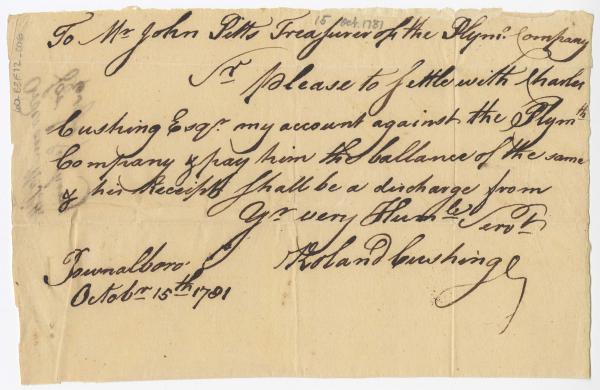 15 Oct. 1781
To Mr John Pitts Treasurer of the Plymo. Company
Sr. Please to Settle with Charles
Cushing Esqr. my account against the Plymth
Company & pay him the ballance of the same
& his Receipt shall be a discharge from
Yr. very Humble Servt.
Roland Cushing
Pownalboro
Octobr 15th 1781